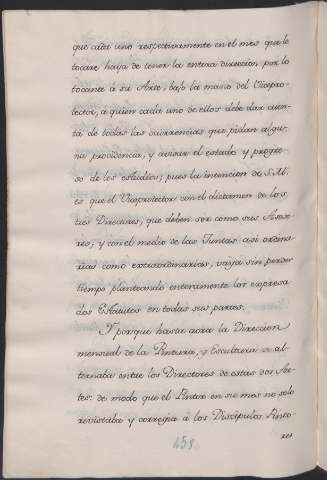 que cada uno respectivamente en el mes que le
tocare haya de tener la entera direccion por lo
tocante á su Arte, bajo la mano del Vicepro-
tector, a quien cada uno de ellos debe dar cuen-
ta de todas las ocurrencias que pidan algu-
na providencia, y avisar el estado y progre-
so de los estudios; pues la intencion de S.M.
es, que el Viceprotector con el dictamen de los
tres Directores, que deben ser como sus Aseso-
res; y con el medio de las Juntas asi ordina-
rias como extraordinarias, vaya sin perder
tiempo planteando enteramente los expresa-
dos Estatutos en todas sus partes.
Y porque hasta aora la Direccion
mensual de la Pintura, y Escultura se al-
ternaba entre los Directores de estas dos Ar-
tes: de modo que el Pintor en su mes no solo
revistaba y corregia á los Discipulos Pinto-
res
459